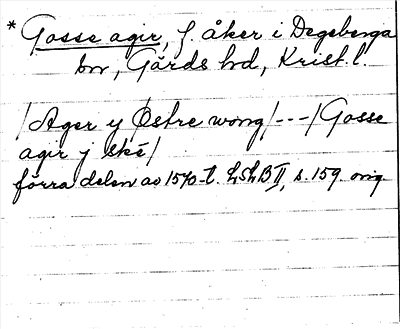 * Gosse agir, f. åker i Degeberga
sn, Gärds hd, Krist. l.
/Ager y Østre wong/---/Gosse
agir j skē/
förra delen av 1570-t. LSLB II, s. 159. orig.